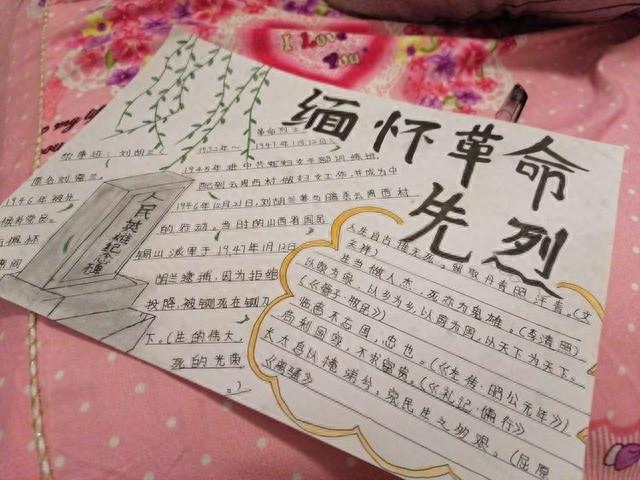 I Love You
缅怀革命
先烈
革命烈士
的事迹:刘胡兰(1932年~1947年1月12日)
原名刘富兰。1945年进中共妇女干部训练班,
1946年被分配到云周西村做妇女工作,并成为中
候补党员。1946年12月21日,刘胡兰参与暗杀云周西村
的行动。当时的山西省国民
派军于1947年1月12日
胡兰逮捕,因为拒绝
投降,被铡死在铡刀
下。(生的伟大,
死的光荣
。)
人民英雄纪念碑
人生自古谁无死。留取丹青照汗青。(文
天祥)
生当做人杰,死亦为鬼雄。(李清照)
以家为家,以乡为乡,以国为国,以天下为天下。
(《管子·牧民》)
临患不忘国,忠也。(《左传·昭公元年》)
苟利国家,不求富贵。(《礼记·儒行》)
长太息以掩涕兮,哀民生之多艰。(屈原
《离骚》)